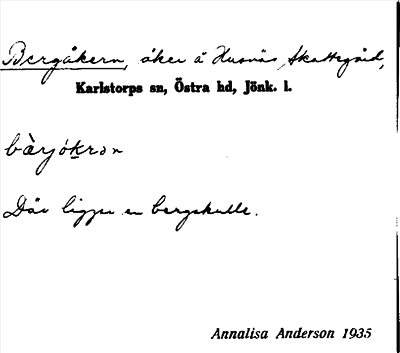 Bergåkern, åker å Husnäs, Skattegård,
Karlstorps sn, Östra hd, Jönk. l.
bàrjókrɔn
Där ligger en bergskulle.
Annalisa Anderson 1935